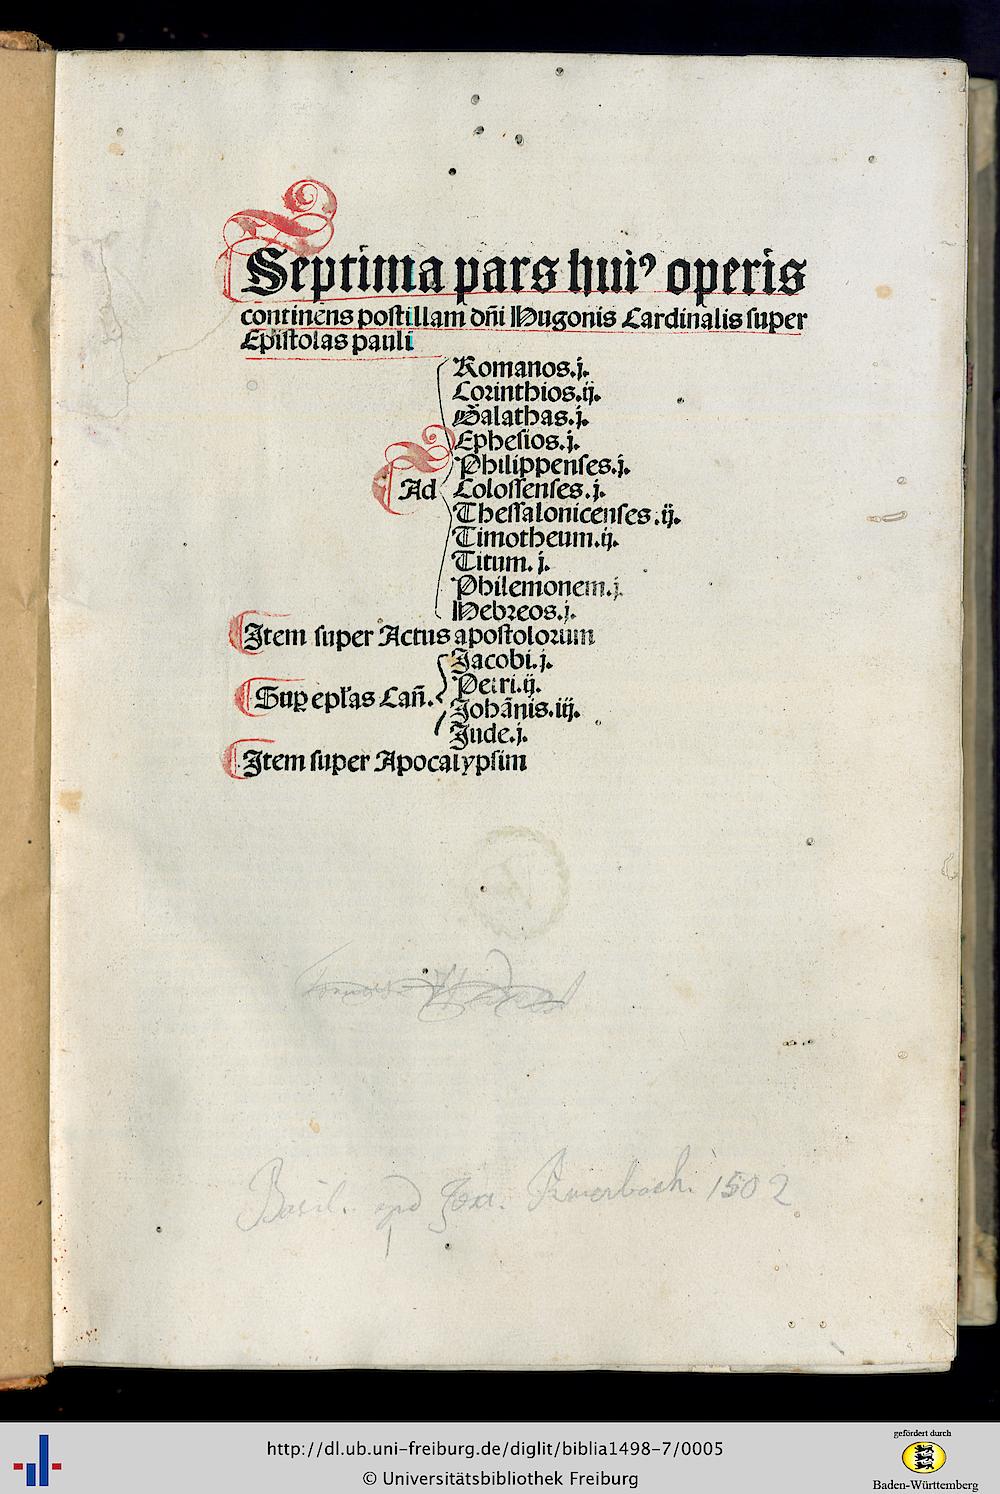 Septima pars huiꝰ operis
continens postillam dñi Hugonis Cardinalis super
Epistolas pauli
Romanos.j.
Corinthios.ij.
Galathas.j.
Ephesios.j.
Philippenses.j.
Ad Colossenses.j.
Thessalonicenses.ij.
Timotheum.ij.
Titum.j.
Philemonem.j.
Hebreos.j.
Item super Actus apostolorum
Jacobi.j.
Petri.ij.
Suꝑ epl̃as Cañ.
Johãnis.iij.
Jude.j.
Item super Apocalypsim
Basil. apd Joa. Amerbach. 1502
http://dl.ub.uni-freiburg.de/diglit/biblia1498-7/0005
© Universitätsbibliothek Freiburg
gefördert durch
Baden-Württemberg